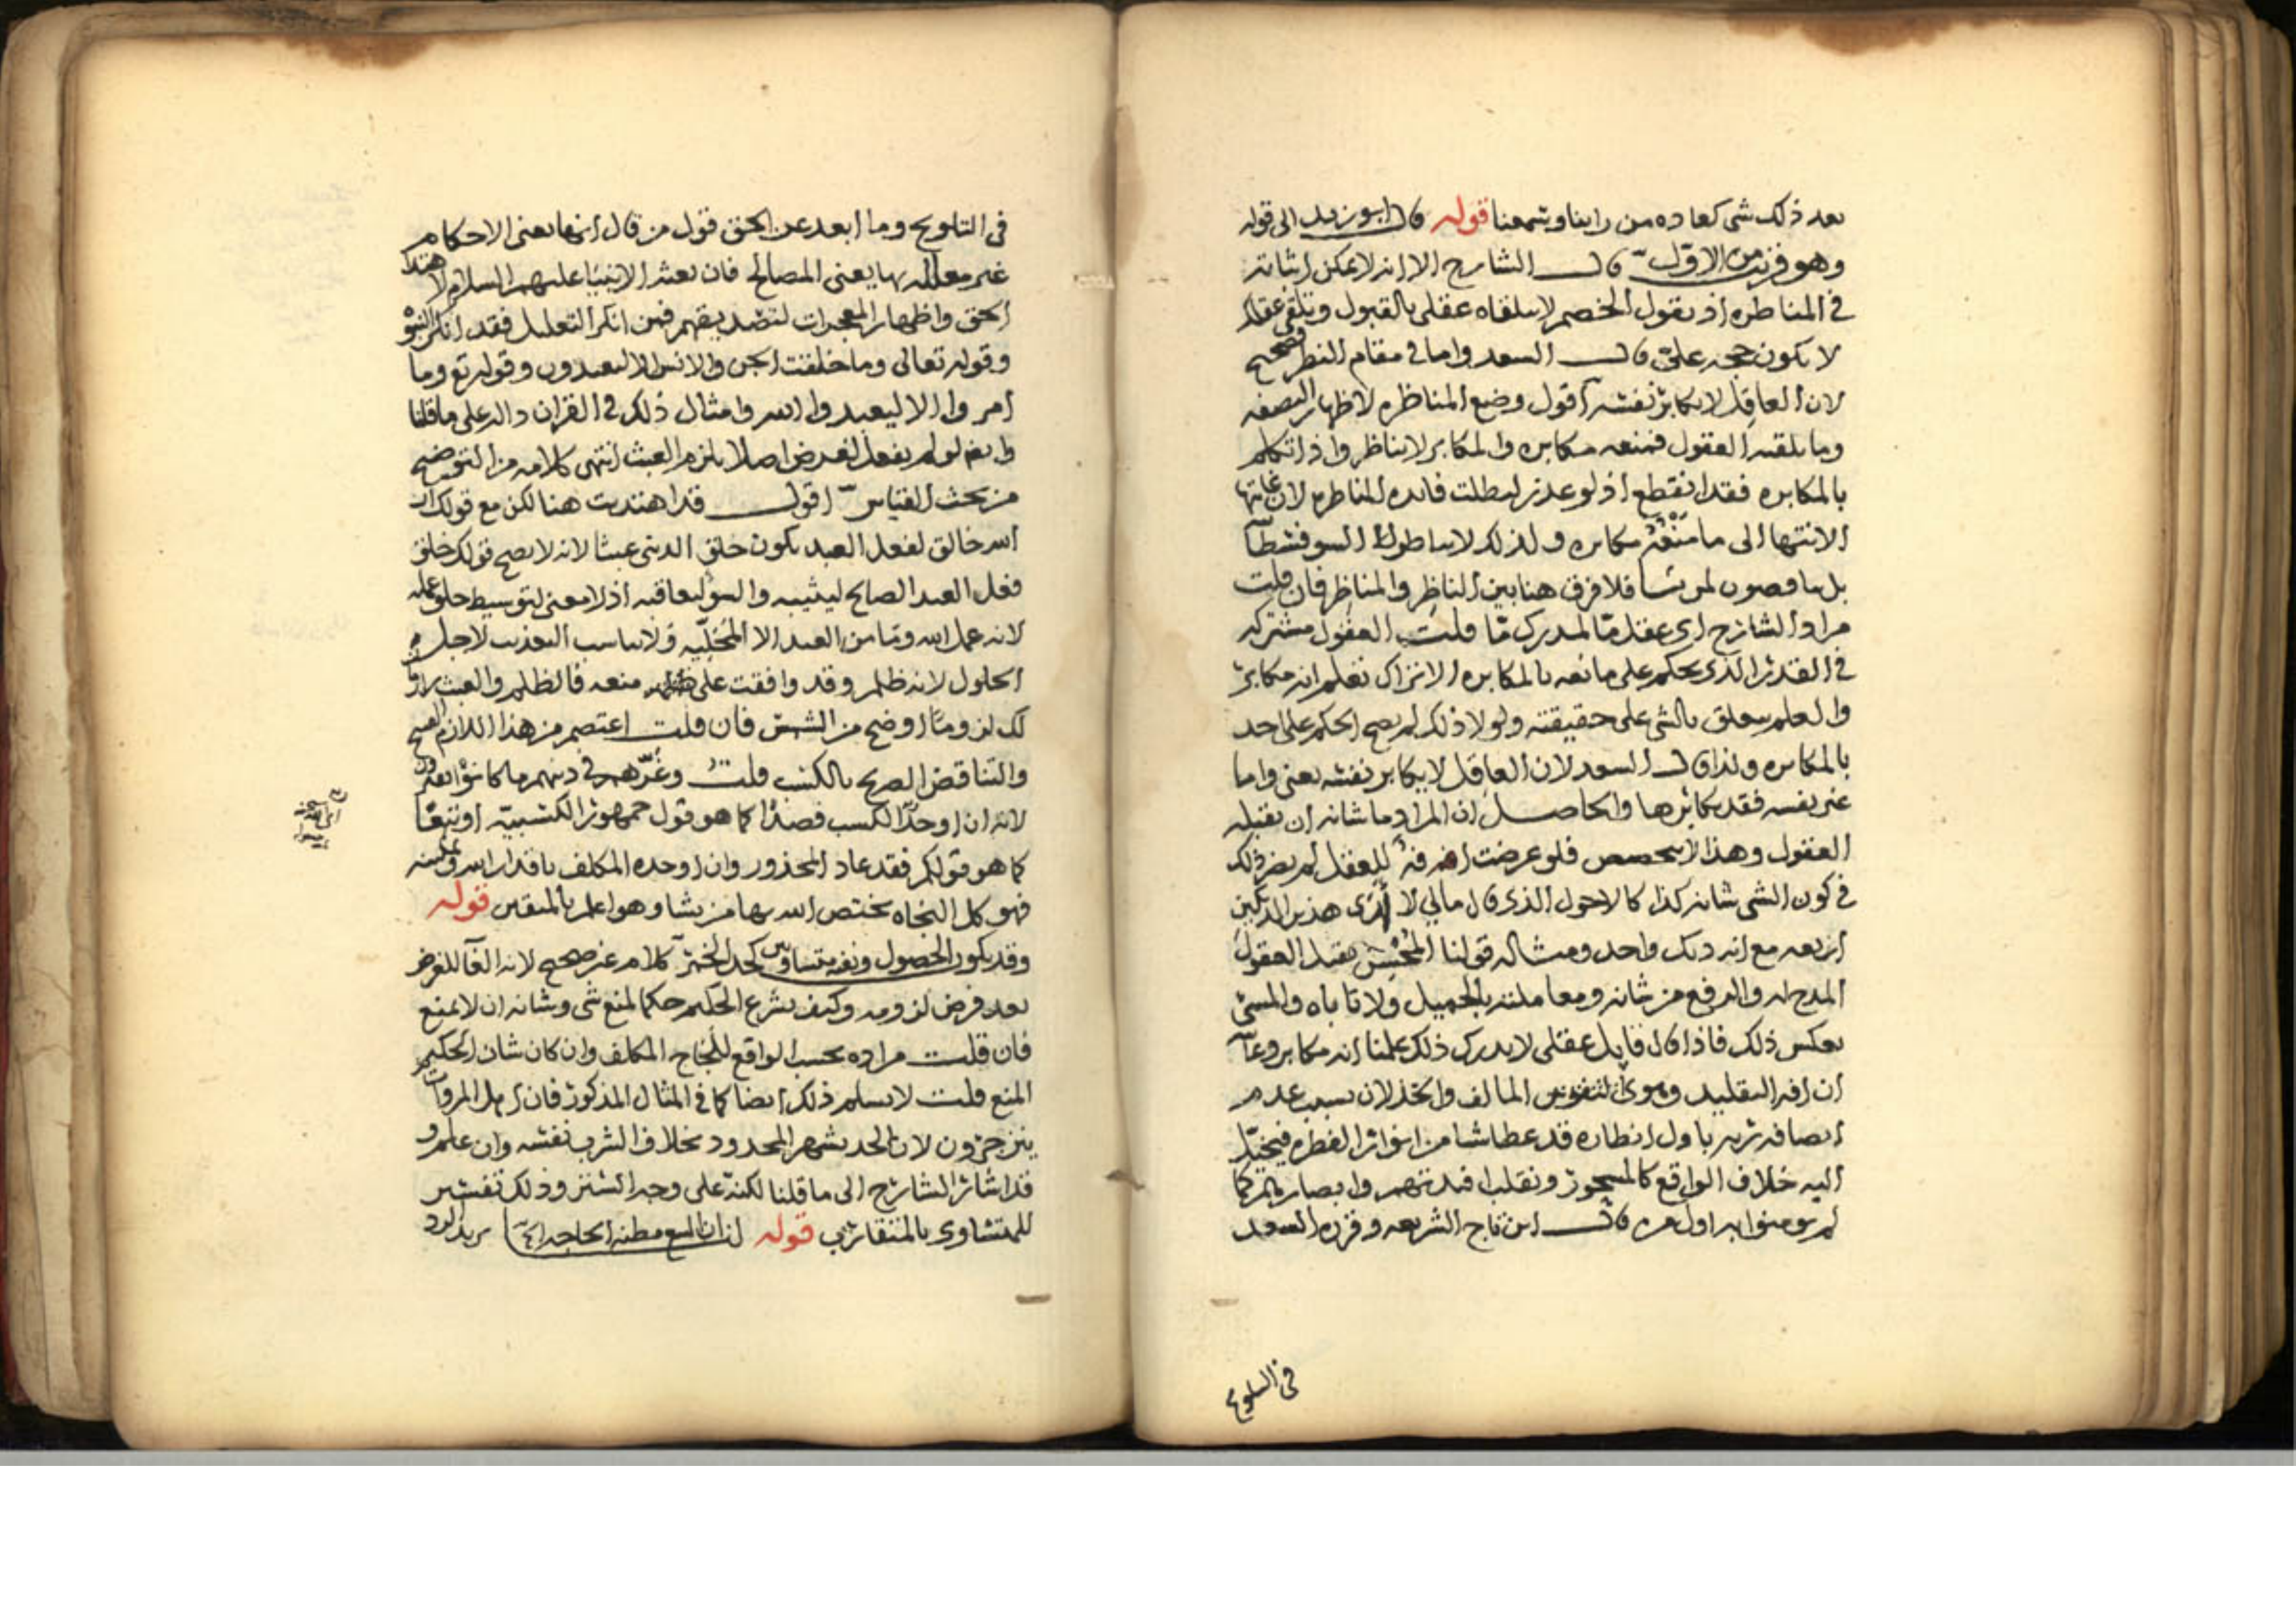 بعد ذلك شي كعاده من راينا وسمعنا قوله قال ابو زيد الى قوله
وهو قريب من الاول قال الشارح الا انه لا يمكن اثباته
في المناظره اذ يقول الخصم لا يتلقاه عقلي بالقبول وتلقي عقلك
لا يكون حجه عليّ قال السعد واما في مقام النظر فصحيح
لان العاقل لا يكابر نفسه اقول وضع المناظره لاظهار النصفه
وما تلقته العقول فمنعه مكابره والمكابر لا يناظر واذا تكلم
بالمكابره فقد انقطع اذ لو عذر لبطلت فائده المناظره لان غايتها
الانتها الى ما منعه مكابره ولذلك لا يناظر السوفسطا
بل فلا فرق هنا بين الناظر والمناظر فان قلت
مراد الشارح اي عقل مّا لمدرك مّا قلت العقول مشتركه
في القدر الذي يحكم على مانعه بالمكابره الا تراك تعلم انه مكابر
والعلم يتعلق بالشي على حقيقته ولولا ذلك لم يصح الحكم على احد
بالمكابره ولذا قال السعد لان العاقل لا يكابر نفسه يعني واما
غير نفسه فقد يكابرها والحاصل ان المراد ما شانه ان تقبله
العقول وهذا لا يتخصص فلو عرضت افه للعقل لم يضر ذلك
في كون الشي شانه كذا كالاحول الذي قال مالي لا ارى هذين الديكين
اربعه مع انه ديك واحد ومثاله قولنا المحسن تقبل العقول
المدح له والرفع من شانه ومعاملته بالجميل ولا تاباه والمسئ
بعكس ذلك فاذا قال قايل عقلي لا يدرك ذلك علمنا انه مكابر وغا
ان افه التقليد وهوى النفوس المالف والخذلان بسبب عدم
انصافه ربه باول انظاره قد غطا شا من انوار الفطره فيختل
اليه خلاف الواقع كالمسحور ونقلب افئدتهم وابصارهم كما
لم يومنوا به اول مره قال ابن تاج الشريعه وقرره السعد
في التلويح
في التلويح وما ابعد عن الحق قول من قال انها يعني الاحكام
غير معلله بها يعني المصالح فان بعثه الانبيا عليهم السلام لاهتدا
الخلق واظهار المعجزات لتصديقهم فمن انكر التعليل فقد انكر النبوه
وقوله تعالى وما خلقت الجن والانس الا ليعبدون وقوله تع وما
امروا الا ليعبدوا الله وامثال ذلك في القران داله على ما قلنا
وايضا لو لم يفعل لغرض اصلا يلزم العبث انتهى كلامه من التوضيح
من بحث القياس اقول قد اهتديت هنا لكن مع قولك ان
الله خالق لفعل العبد يكون خلق الدنى عبثا لانه لا يصح قولك خلق
فعل العبد الصالح ليثيبه والسؤ ليعاقبه اذ لا معنى لتوسيط خلق عمله
لانه عمل الله وما من العبد الا المحليّه ولا يناسب التعذيب لاجل
الحلول لانه ظلم وقد وافقت على منعه فالظلم والعبث
لك لزوما اوضح من الشمس فان قلت اعتصم من هذا اللازم القبيح
والتناقض الصريح بالكسب قلت وغرّهم في دينهم ما كانوا يفترون
لانه ان اوجد الكسب قصدًا كما هو قول جمهور الكسبيّه او تبعًا
كما هو قولكم فقد عاد المحذور وان اوجده المكلف باقدار الله وتمكينه
فهو كل النجاه يختص الله بها من يشا وهو اعلم بالمتقين قوله
وقد يكون الحصول ونفيه متساويين كحد الخمر كلام غير صحيح لانه الغا للغرض
بعد فرض لزومه وكيف يشرع الحكيم حكما لمنع شي وشانه ان لا يمنع
فان قلت مراده بحسب الواقع للجاج المكلف وان كان شان الحكيم
المنع قلت لا يسلم ذلك ايضا كما في المثال المذكور فان اهل المروات
ينزجرون لان الحد يشهر المحدود بخلاف الشرب نفسه وان علم و
قد اشار الشارح الى ما قلنا لكنه على وجه الستر وذلك تفسير
للمتساوي بالمتقارب قوله لنا ان البيع مظنه الحاجه